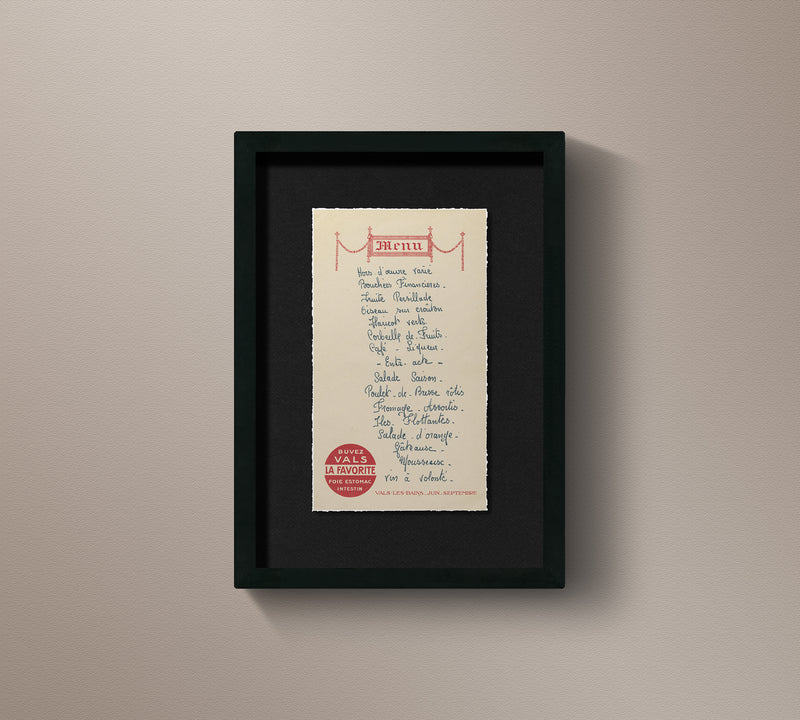 Menu
Hors d'œuvre varié
Bouchées Financières.
Truite Persillade
Oiseau sur croûton
Haricot verts.
Corbeille de Fruits.
Café - Liqueur.
- Entr. acte -
Salade Saison.
Poulet de Bresse rôtis
Fromage Assortis.
Iles Flottantes.
Salade d'orange.
Gâteaux.
Mousseux.
vin à volonté.
BUVEZ
VALS
LA FAVORITE
FOIE ESTOMAC
INTESTIN
VALS-LES-BAINS. JUIN. SEPTEMBRE